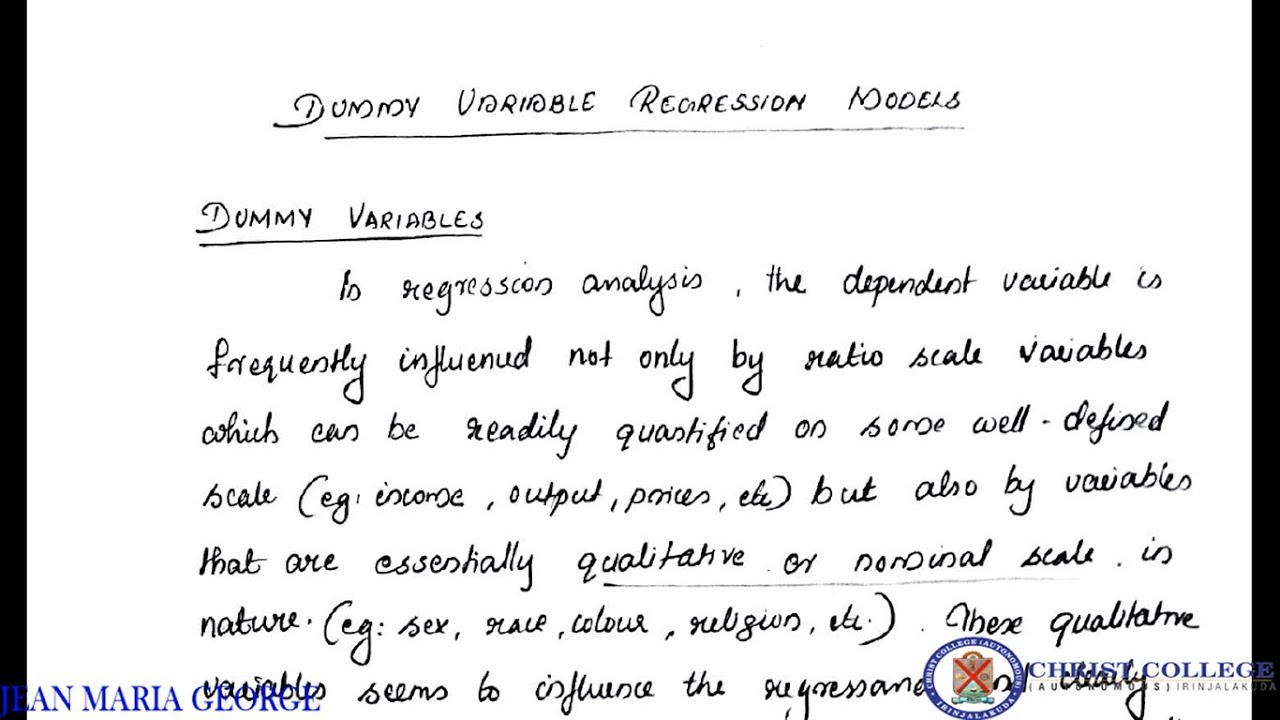 DUMMY VARIABLE REGRESSION MODELS
DUMMY VARIABLES
In regression analysis, the dependent variable is
frequently influenced not only by ratio scale variables
which can be readily quantified on some well-defined
scale (eg: income, output, prices, etc) but also by variables
that are essentially qualitative or nominal scale in
nature. (eg: sex, race, colour, religion, etc.). These qualitative
variables seems to influence the
JEAN MARIA GEORGE
CHRIST COLLEGE
(AUTONOMOUS) IRINJALAKUDA
CHRIST COLLEGE (AUTONOMOUS)
IRINJALAKUDA